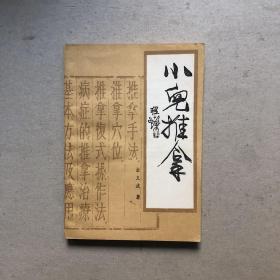 小兒推拿
金义成 著
推拿手法
推拿穴位
推拿複式操作法
病症的推拿治療
基本方法及應用